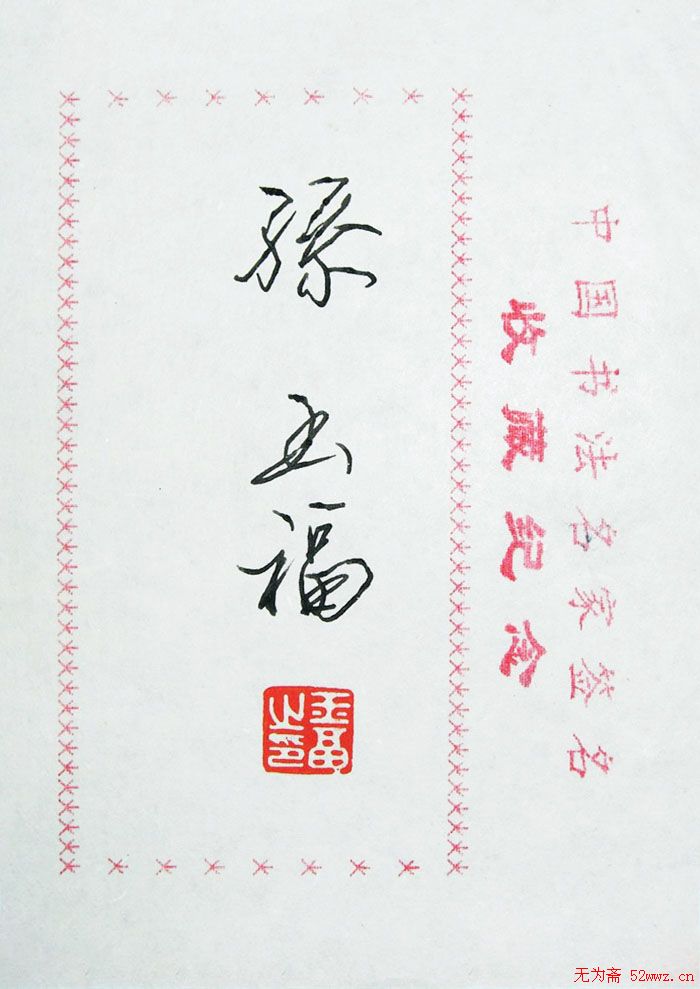 中国书法名家签名
收藏纪念
孫玉福
玉福
之印
无为斋 52wwz.cn